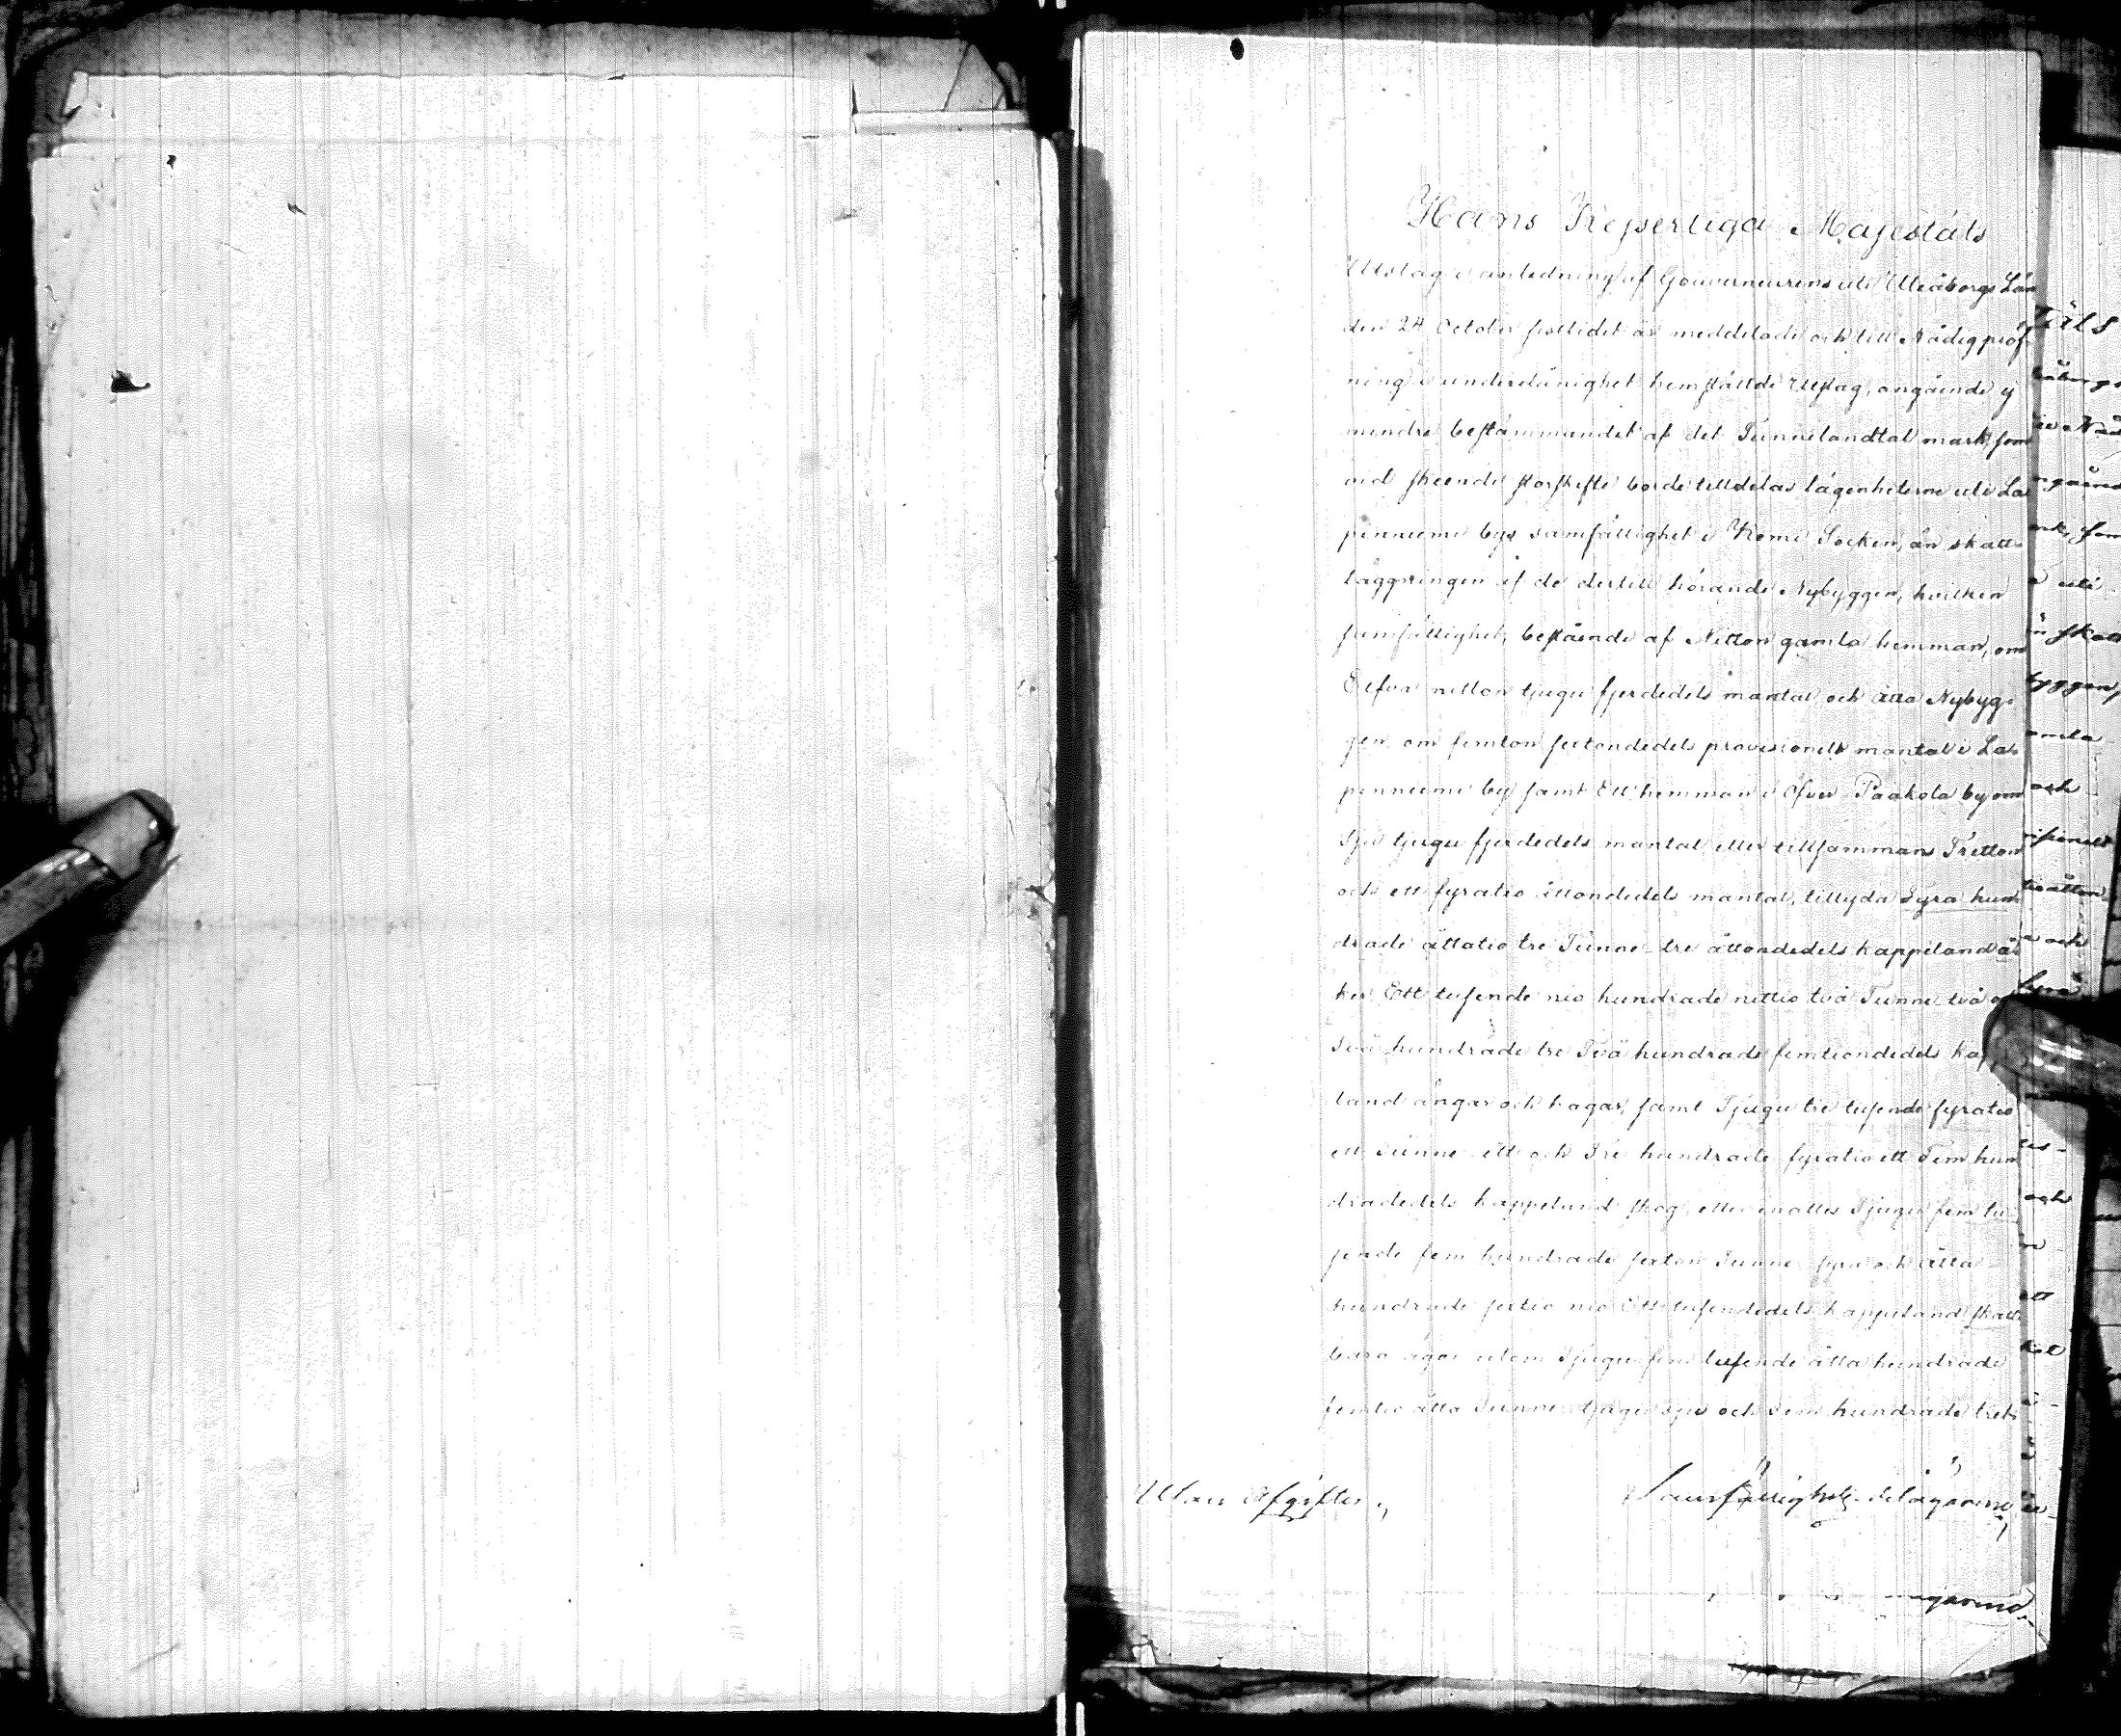 Hans Kejserliga Majestäts
Utslag i anledning af Gouverneurens uti Uleåborgs Län
den 24 October sistlidet år meddelade och till Nådig pröf-
ning i underdånighet hemstälda Utslag, angående ej
mindre bestämmandet af det Tunnelandtal mark, som
vid skeende storskifte borde tilldelas lägenheterne uti La
pinniemi bys samfällighet i Kemi Socken, än skatt-
läggningen af de dertill hörande Nybyggen, hvilken
samfällighet, bestående af Nitton gamla hemman, om
Elfva nitton tjugu fjerdedels mantal och åtta Nybyg-
gen om femton sextondedels provisionelt mantal i La-
pinniemi by samt Ett hemman i Öfver Paakola by om
Sju tjugu fjerdedels mantal eller tillsammans Tretton
och ett fyratio åttondedels mantal, tillyda Fyra hun-
drade åttatio tre Tunne tre åttondedels kappeland åk
ker Ett tusende nio hundrade nittio två Tunne två
två hundrade tre Två hundrade femtiondedels ka
land ängar och hagar, samt Tjugu tre tusende fyratio
ett Tunne ett och Tre hundrade fyratio ett Fem hun
dradedels kappeland skog, eller inalles Tjugu fem tu
sende fem hundrade sexton Tunne fyra och åtta
hundrade sextio nio Ett tusendedels kappeland skatt
bara ägor utom Tjugu fem tusende åtta hundrade
femtio åtta Tunne tjugu sju och Fem hundrade tret-
Utan Afgifter,
Samfällighets delägarene,